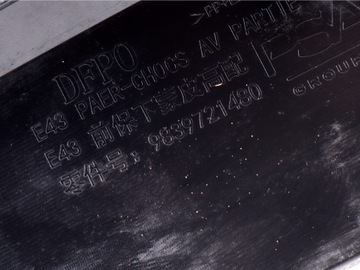 >PP+E
DFPO
PSA
GROUP
E43 PAER-CHOCS AV PARTIE
E43 前保下蒙皮高配
零件号: 9839721480